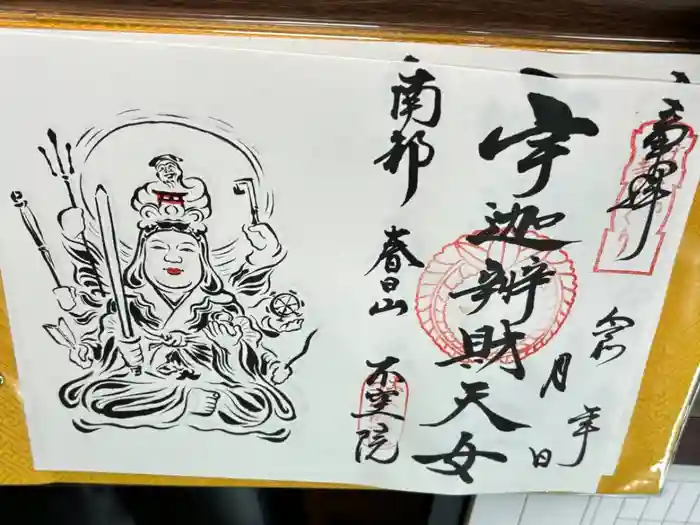 奉拝
令 年
月 日
宇迦辨財天女
南都
春日山
不空院